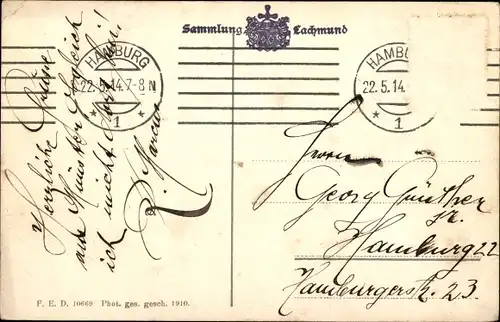 Sammlung Lachmund
HAMBURG
22.5.14.7-8 N
* 1 *
HAMBU
22.5.14
* 1
Herzliche Grüsse
aus Münster
ich nicht
R. Marcus
Herrn
Georg Günther
jr.
Hamburg 22
Hamburgerstr. 23.
F. E. D. 10669 Phot. ges. gesch. 1910.